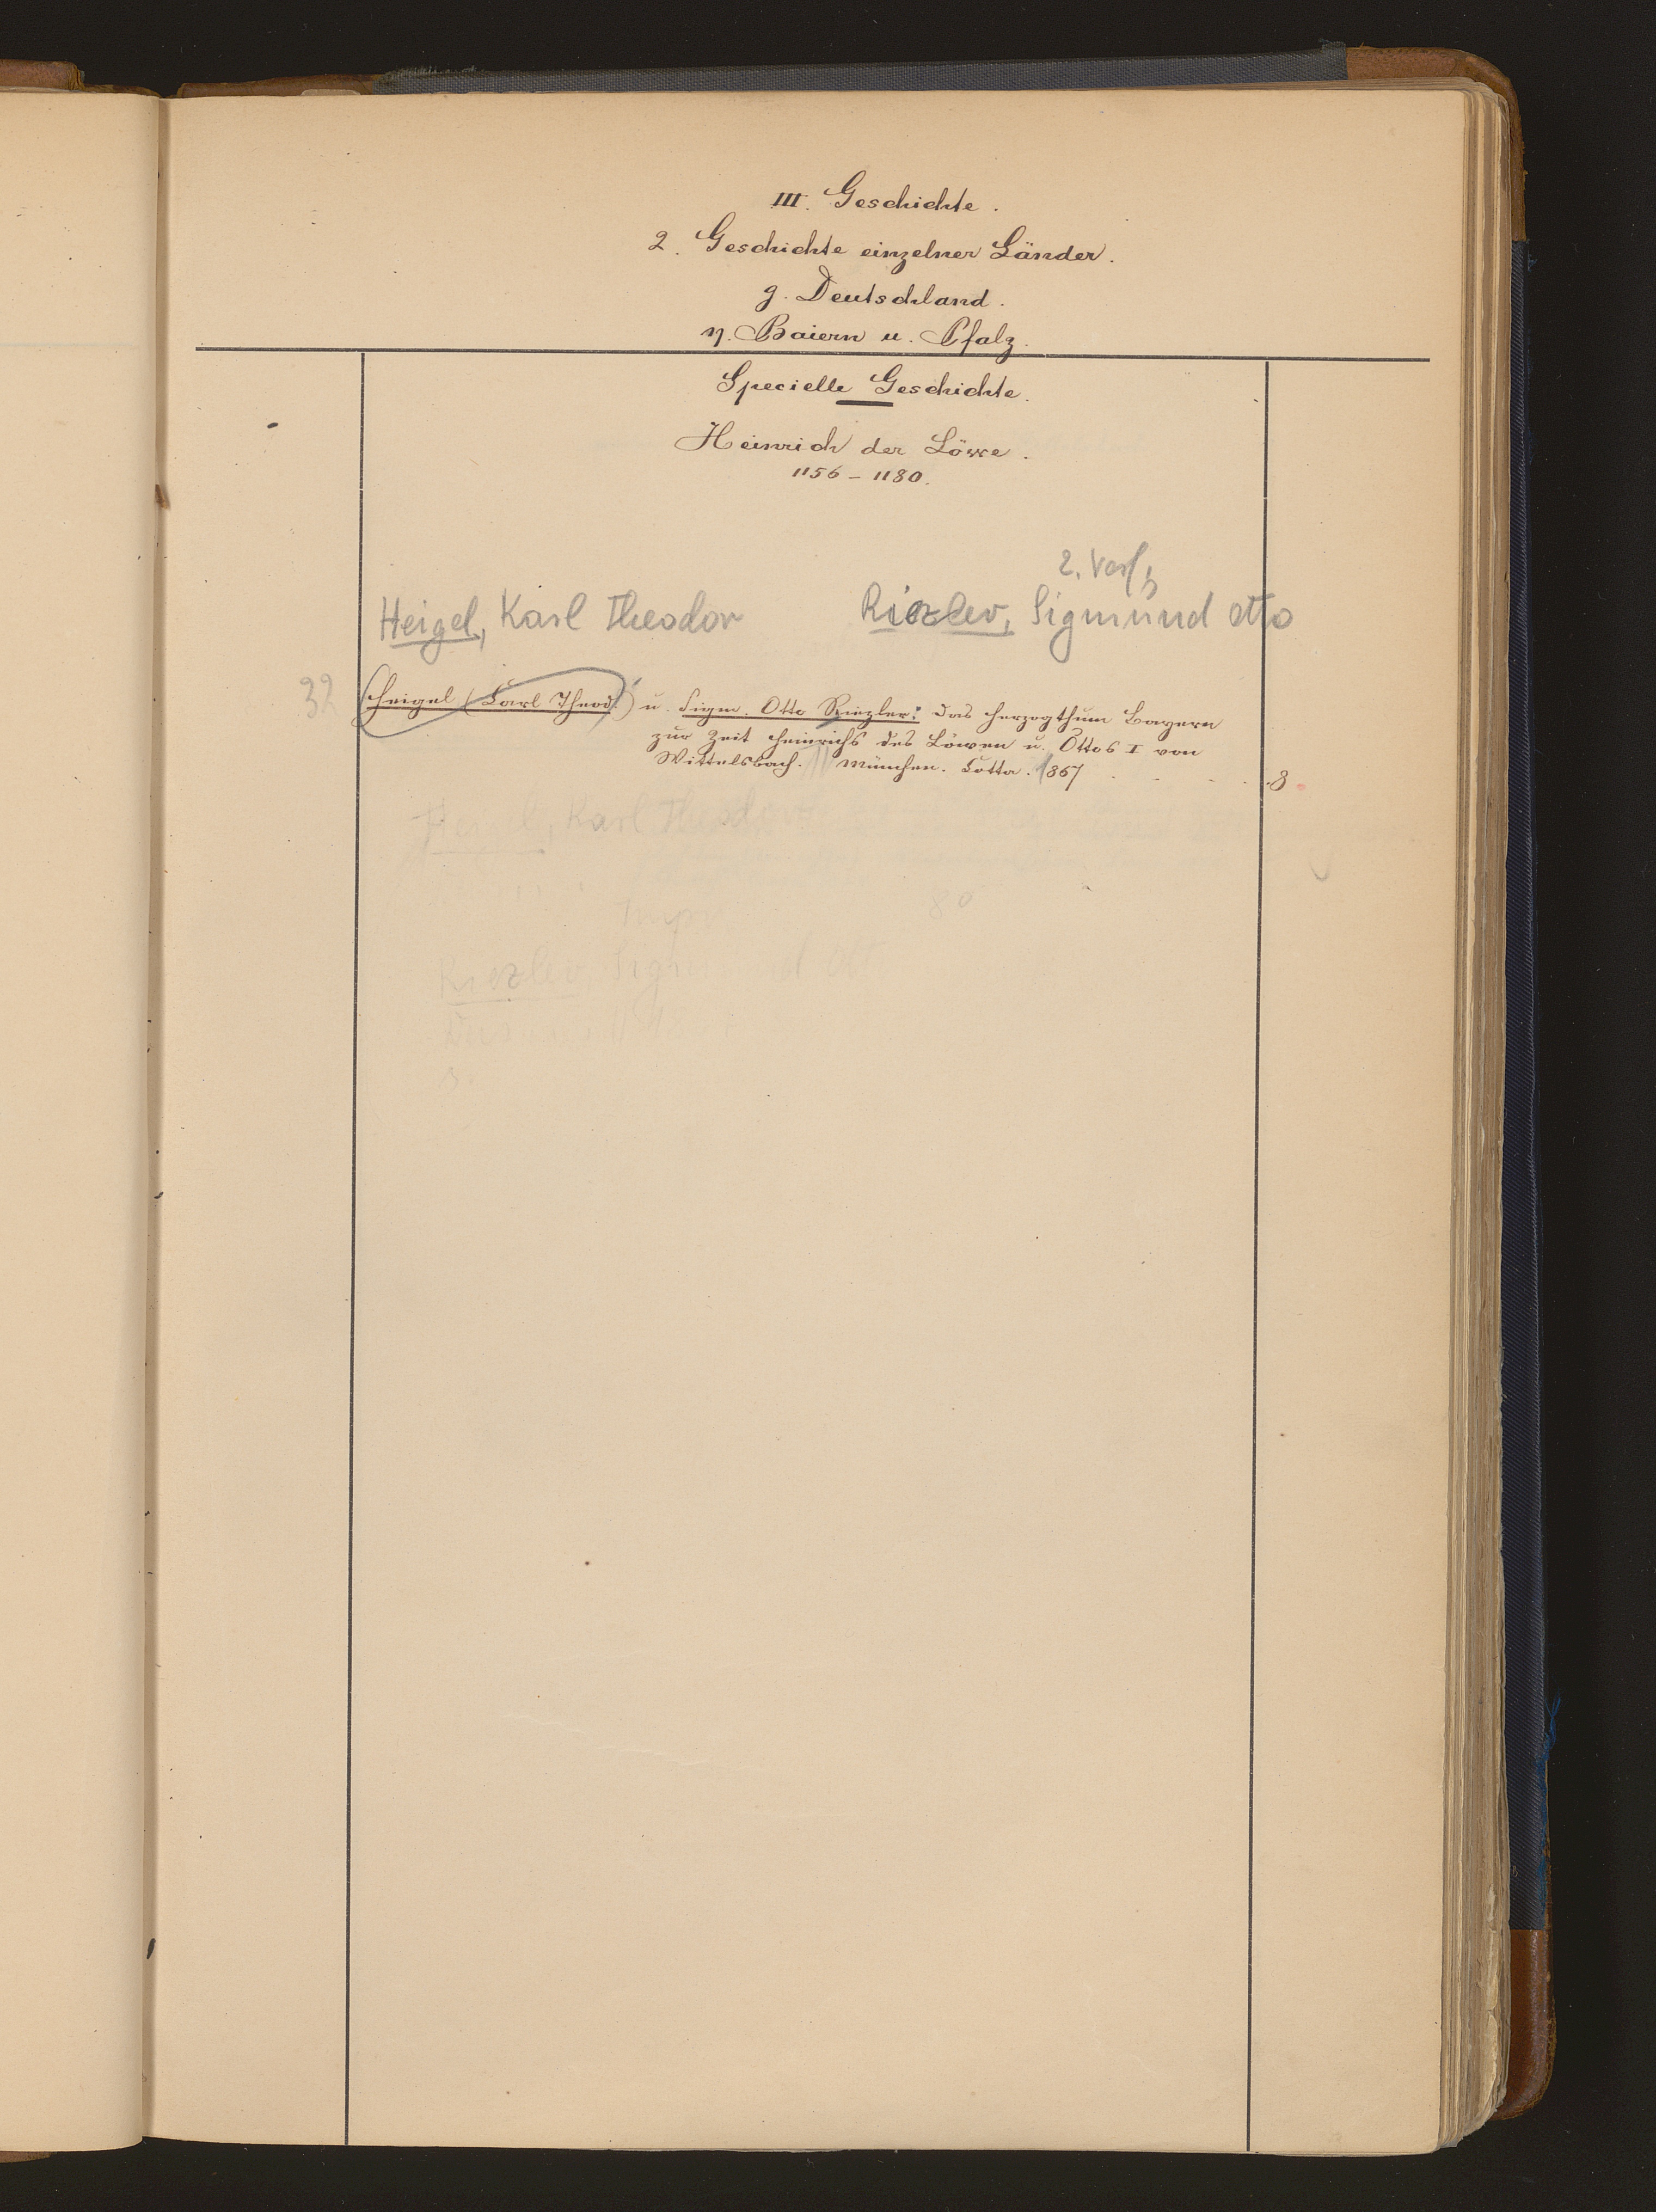 III. Geschichte.
2. Geschichte einzelner Länder.
g. Deutschland.
η. Baiern u. Pfalz.
Specielle Geschichte.
Heinrich der Löwe.
1156 – 1180.
2. Verf.
Heigel, Karl Theodor Riezler, Sigmund Otto
32 Heigel (Carl Theod.) u. Sigm. Otto Riezler: Das Herzogthum Bayern
zur Zeit Heinrichs des Löwen u. Ottos I von
Wittelsbach. München. Cotta. 1867 . . . . 8
Heigel, Karl Theodor
8°
Riezler, Sigmund Otto